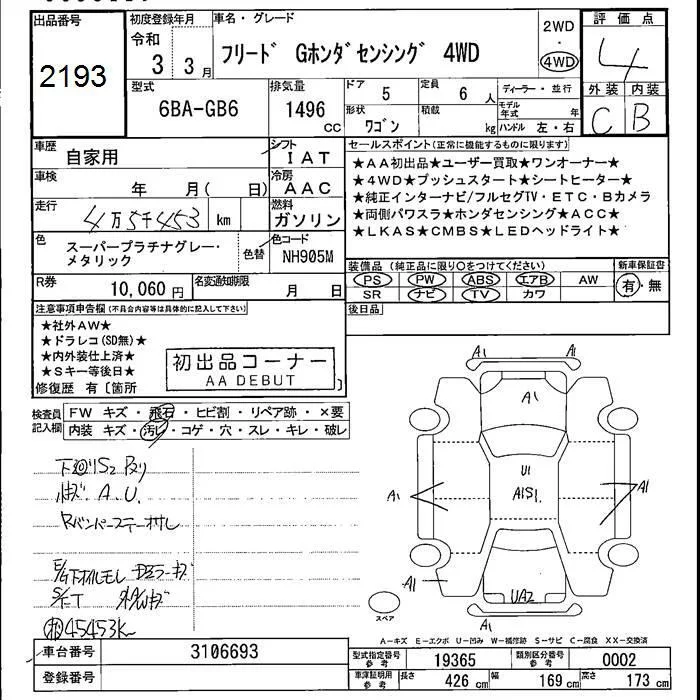 出品番号
2193
初度登録年月
令和
3 3月
車名・グレード
フリード Gホンダセンシング 4WD
2WD
・
4WD
評価点
4
外装 内装
C B
型式
6BA-GB6
排気量
1496
cc
ドア
5
定員
6 人
形状
ワゴン
積載
kg
ディーラー・並行
モデル年式 年
ハンドル 左・右
車歴
自家用
シフト
IAT
車検
年 月( 日)
冷房
AAC
走行
4万5千453 km
燃料
ガソリン
色
スーパープラチナグレー・
メタリック
色替
色コード
NH905M
R券
10,060 円
名変通知期限
月 日
セールスポイント(正常に機能するものに限ります)
★AA初出品★ユーザー買取★ワンオーナー★
★4WD★プッシュスタート★シートヒーター★
★純正インターナビ/フルセグTV・ETC・Bカメラ
★両側パワスラ★ホンダセンシング★ACC★
★LKAS★CMBS★LEDヘッドライト★
装備品(純正品に限り○をつけてください)
PS PW ABS エアB AW
SR ナビ TV カワ
新車保証書
有・無
後日品
注意事項申告欄(不具合内容等は具体的に記入して下さい)
★社外AW★
★ドラレコ(SD無)★
★内外装仕上済★
★Sキー等後日★
修復歴 有[箇所 ]
初出品コーナー
AA DEBUT
検査員
記入欄
FW キズ・飛石・ヒビ割・リペア跡・×要
内装 キズ・汚レ・コゲ・穴・スレ・キレ・破レ
下廻りS2
A.U.
Rバンパーステーサレ
E/G下オイルモレ
45453K
A1
A1
U1
A1S1
A1
A1
A1
UA2
A1
スペア
A-キズ E-エクボ U-凹み W-補修跡 S-サビ C-腐食 XX-交換済
車台番号
3106693
登録番号
型式指定番号
参考
19365
類別区分番号
参考
0002
車庫証明用
参考
長さ
426 cm
幅
169 cm
高さ
173 cm